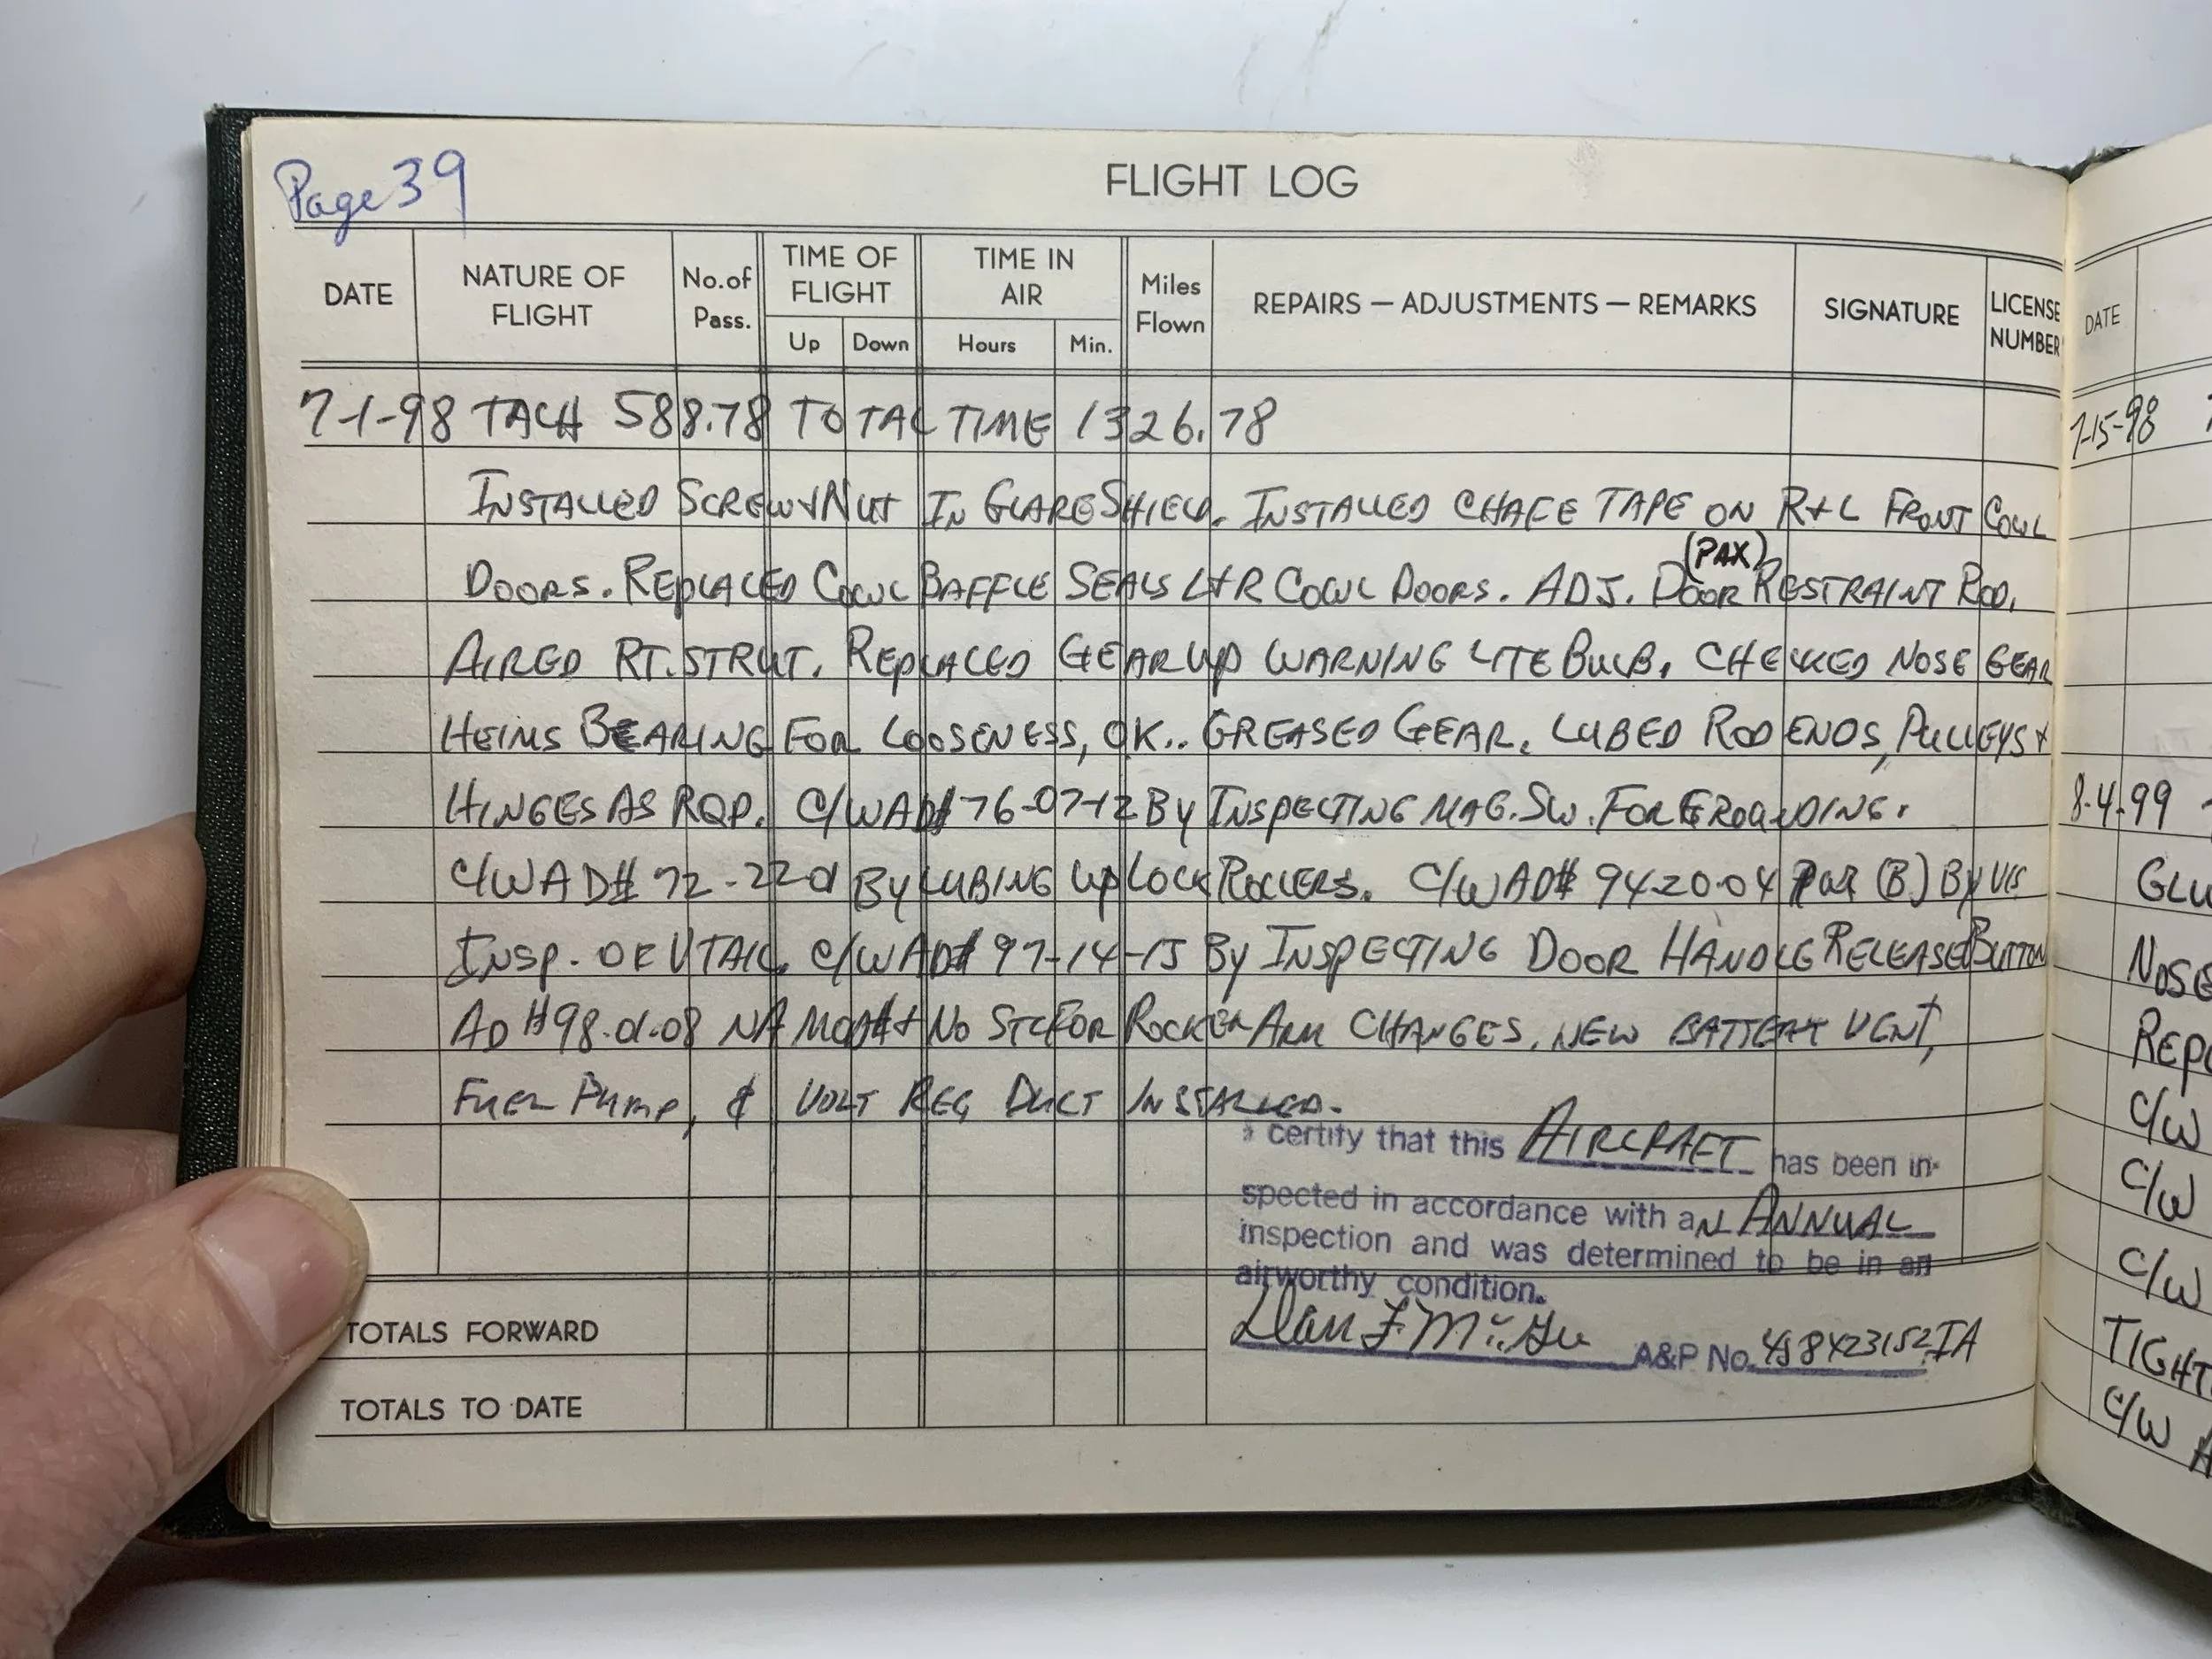 Page 39
FLIGHT LOG
DATE NATURE OF FLIGHT No.of Pass. TIME OF FLIGHT Up Down TIME IN AIR Hours Min. Miles Flown REPAIRS — ADJUSTMENTS — REMARKS SIGNATURE LICENSE NUMBER
7-1-98 TACH 588.78 TOTAL TIME 1326.78
INSTALLED SCREW & NUT IN GLARESHIELD. INSTALLED CHAFE TAPE ON R+L FRONT COWL
(PAX)
DOORS. REPLACED COWL BAFFLE SEALS L+R COWL DOORS. ADJ. DOOR RESTRAINT ROD.
AIRED RT. STRUT. REPLACED GEAR UP WARNING LITE BULB. CHECKED NOSE GEAR
HEIMS BEARING FOR LOOSENESS, OK.. GREASED GEAR. LUBED ROD ENDS, PULLEYS +
HINGES AS RQD. C/W AD# 76-07-12 BY INSPECTING MAG. SW. FOR GROUNDING.
C/W AD# 72-22-01 BY LUBING UPLOCK ROLLERS. C/W AD# 94-20-04 PAR (B) BY VIS
INSP. OF V TAIL. C/W AD# 97-14-15 BY INSPECTING DOOR HANDLE RELEASED BUTTON
AD #98-01-08 NA MOD# + NO STC FOR ROCKER ARM CHANGES. NEW BATTERY VENT,
FUEL PUMP, & VOLT REG DUCT INSTALLED.
I certify that this AIRCRAFT has been in-
spected in accordance with aN ANNUAL
inspection and was determined to be in an
airworthy condition.
A&P No. 458423152IA
TOTALS FORWARD
TOTALS TO DATE
DATE
7-15-98
8-4-99
GLU
NOSE
REPL
C/W
C/W
C/W
TIGHT
C/W A